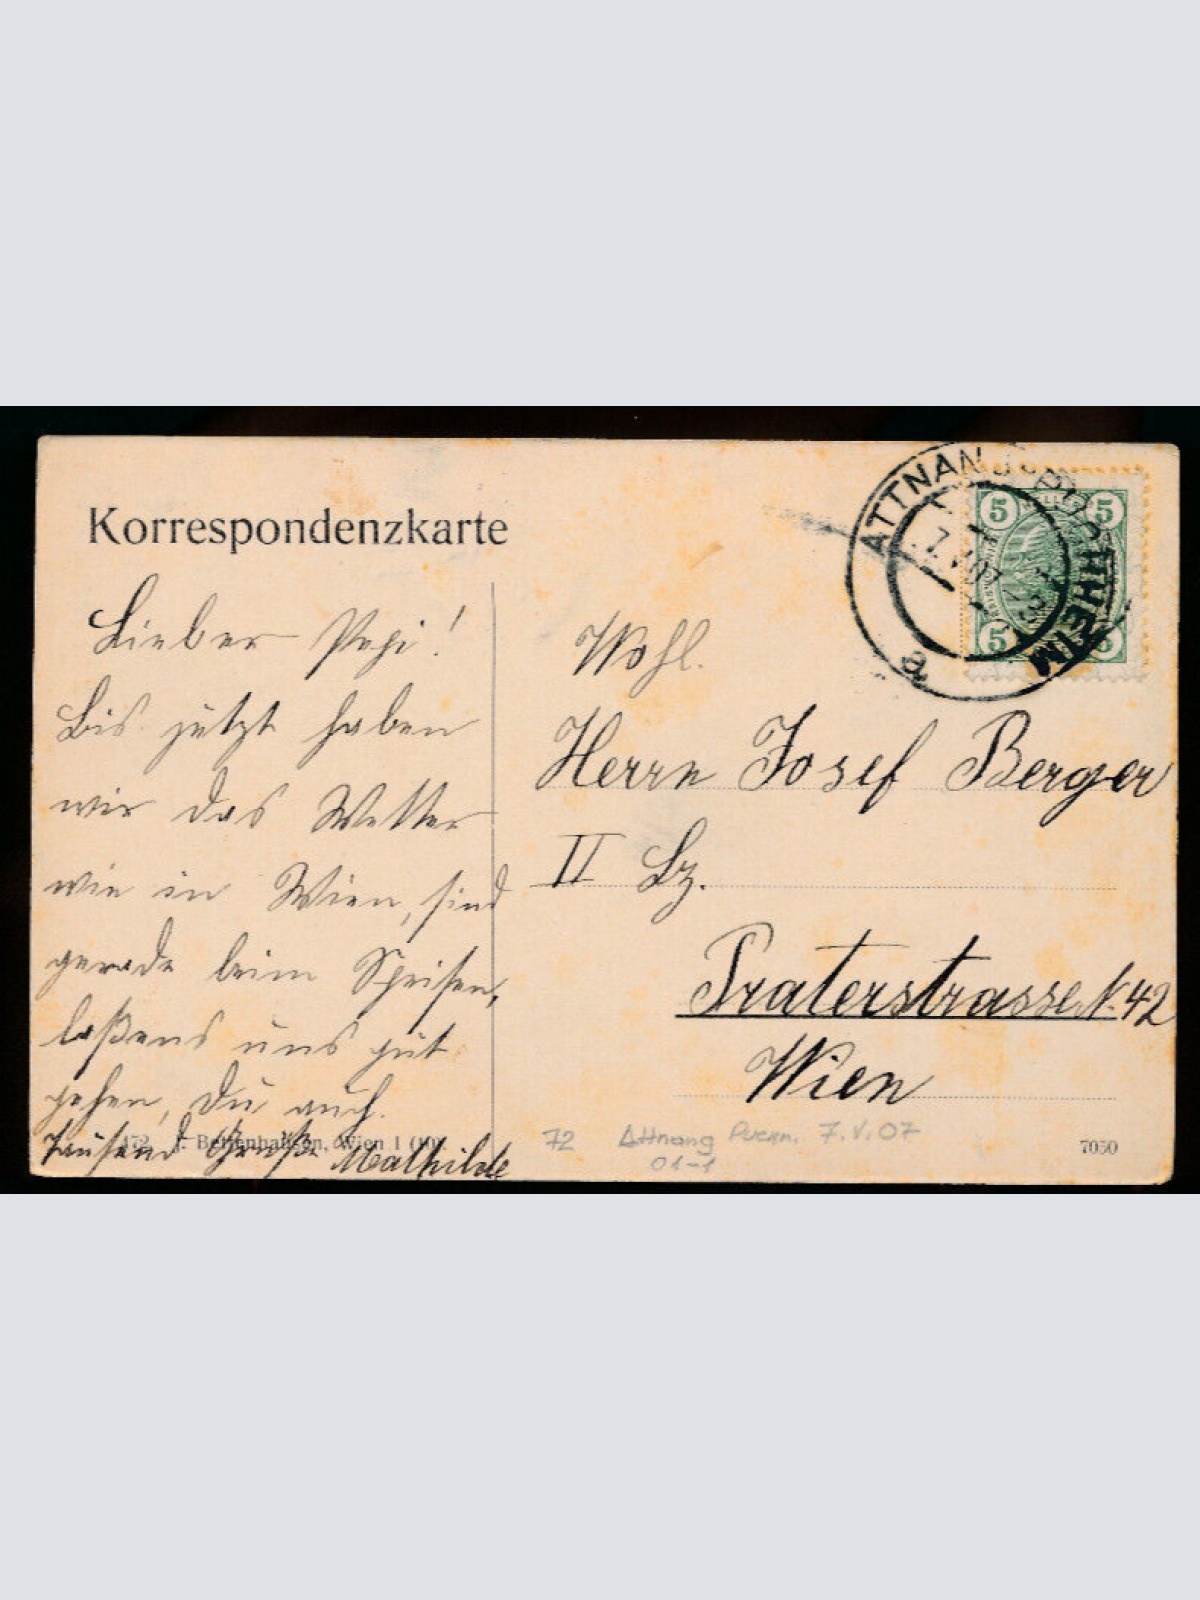 Korrespondenzkarte
Lieber Pepi!
Bis jetzt haben
wir das Wetter
wie in Wien, sind
gerade beim Speisen,
laßens uns gut
gehen, Du auch.
Tausend Grüße Mathilde
Bettenhausen, Wien I (10).
ATTNANG-PUCHHEIM
7.V.07
a
5 5
5 5
Wohl.
Herrn Josef Berger
II Bz.
Praterstrasse N. 42
Wien
72 Attnang Puchh. 7.V.07
01-1
7050